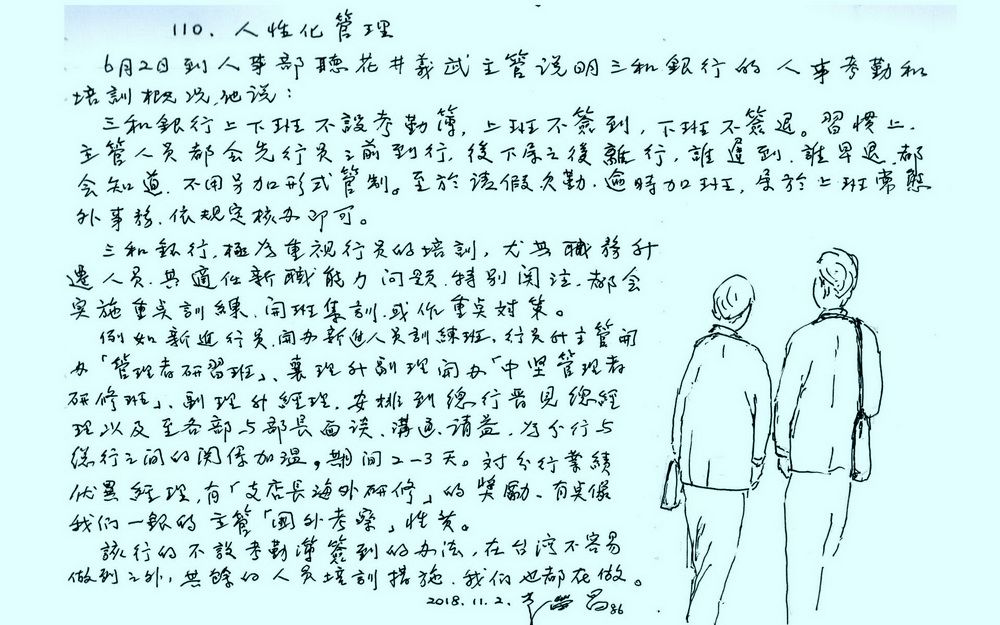 110. 人性化管理
6月2日到人事部聽花井義武主管说明三和銀行的人事考勤和
培訓概况,他说:
三和銀行上下班不設考勤簿,上班不簽到,下班不簽退。習慣上.
主管人员都会先行员之前到行,後下屬之後離行,誰遲到.誰早退.都
会知道.不用另加形式管制。至於请假欠勤.逾時加班,屬於上班常態
外事務.依規定核办即可。
三和銀行,極为重視行员的培訓,尤其職務升
遷人员.其適任新職能力问题.特别関注.都会
实施重点訓練.開班集訓.或作重点对策。
例如新進行员.開办新進人员訓練班.行员升主管開
办「管理者研習班」、襄理升副理開办「中坚管理者
研修班」、副理升經理.安排到總行晋见總經
理以及至各部与部長面谈.溝通.请益.为分行与
總行之间的関係加温。期间2-3天。对分行業績
优異經理,有「支店長海外研修」的獎勵、有点像
我们一般的主管「國外考察」性质。
該行的不設考勤簿簽到的办法,在台湾不容易
做到之外,其餘的人员培訓措施.我们也都在做。
2018.11.2. 昌86